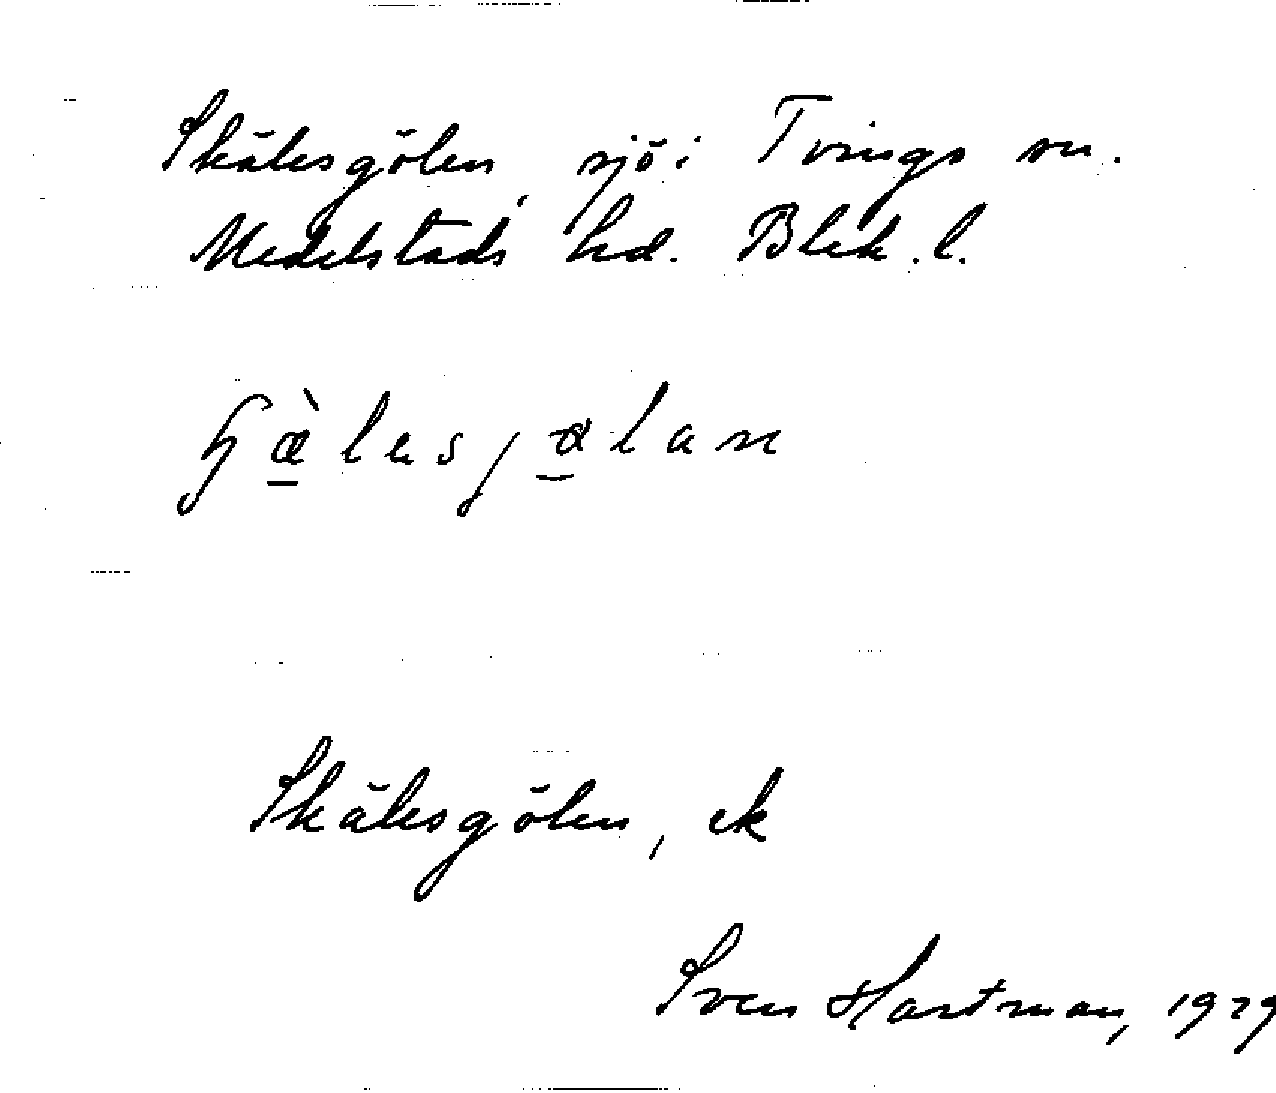 Skälesgölen, sjö i Tvings sn.
Medelstads hd. Blek. l.
ɧæ̠̀lesjø̠lan
Skälesgölen, ek
Sven Hartman, 1929